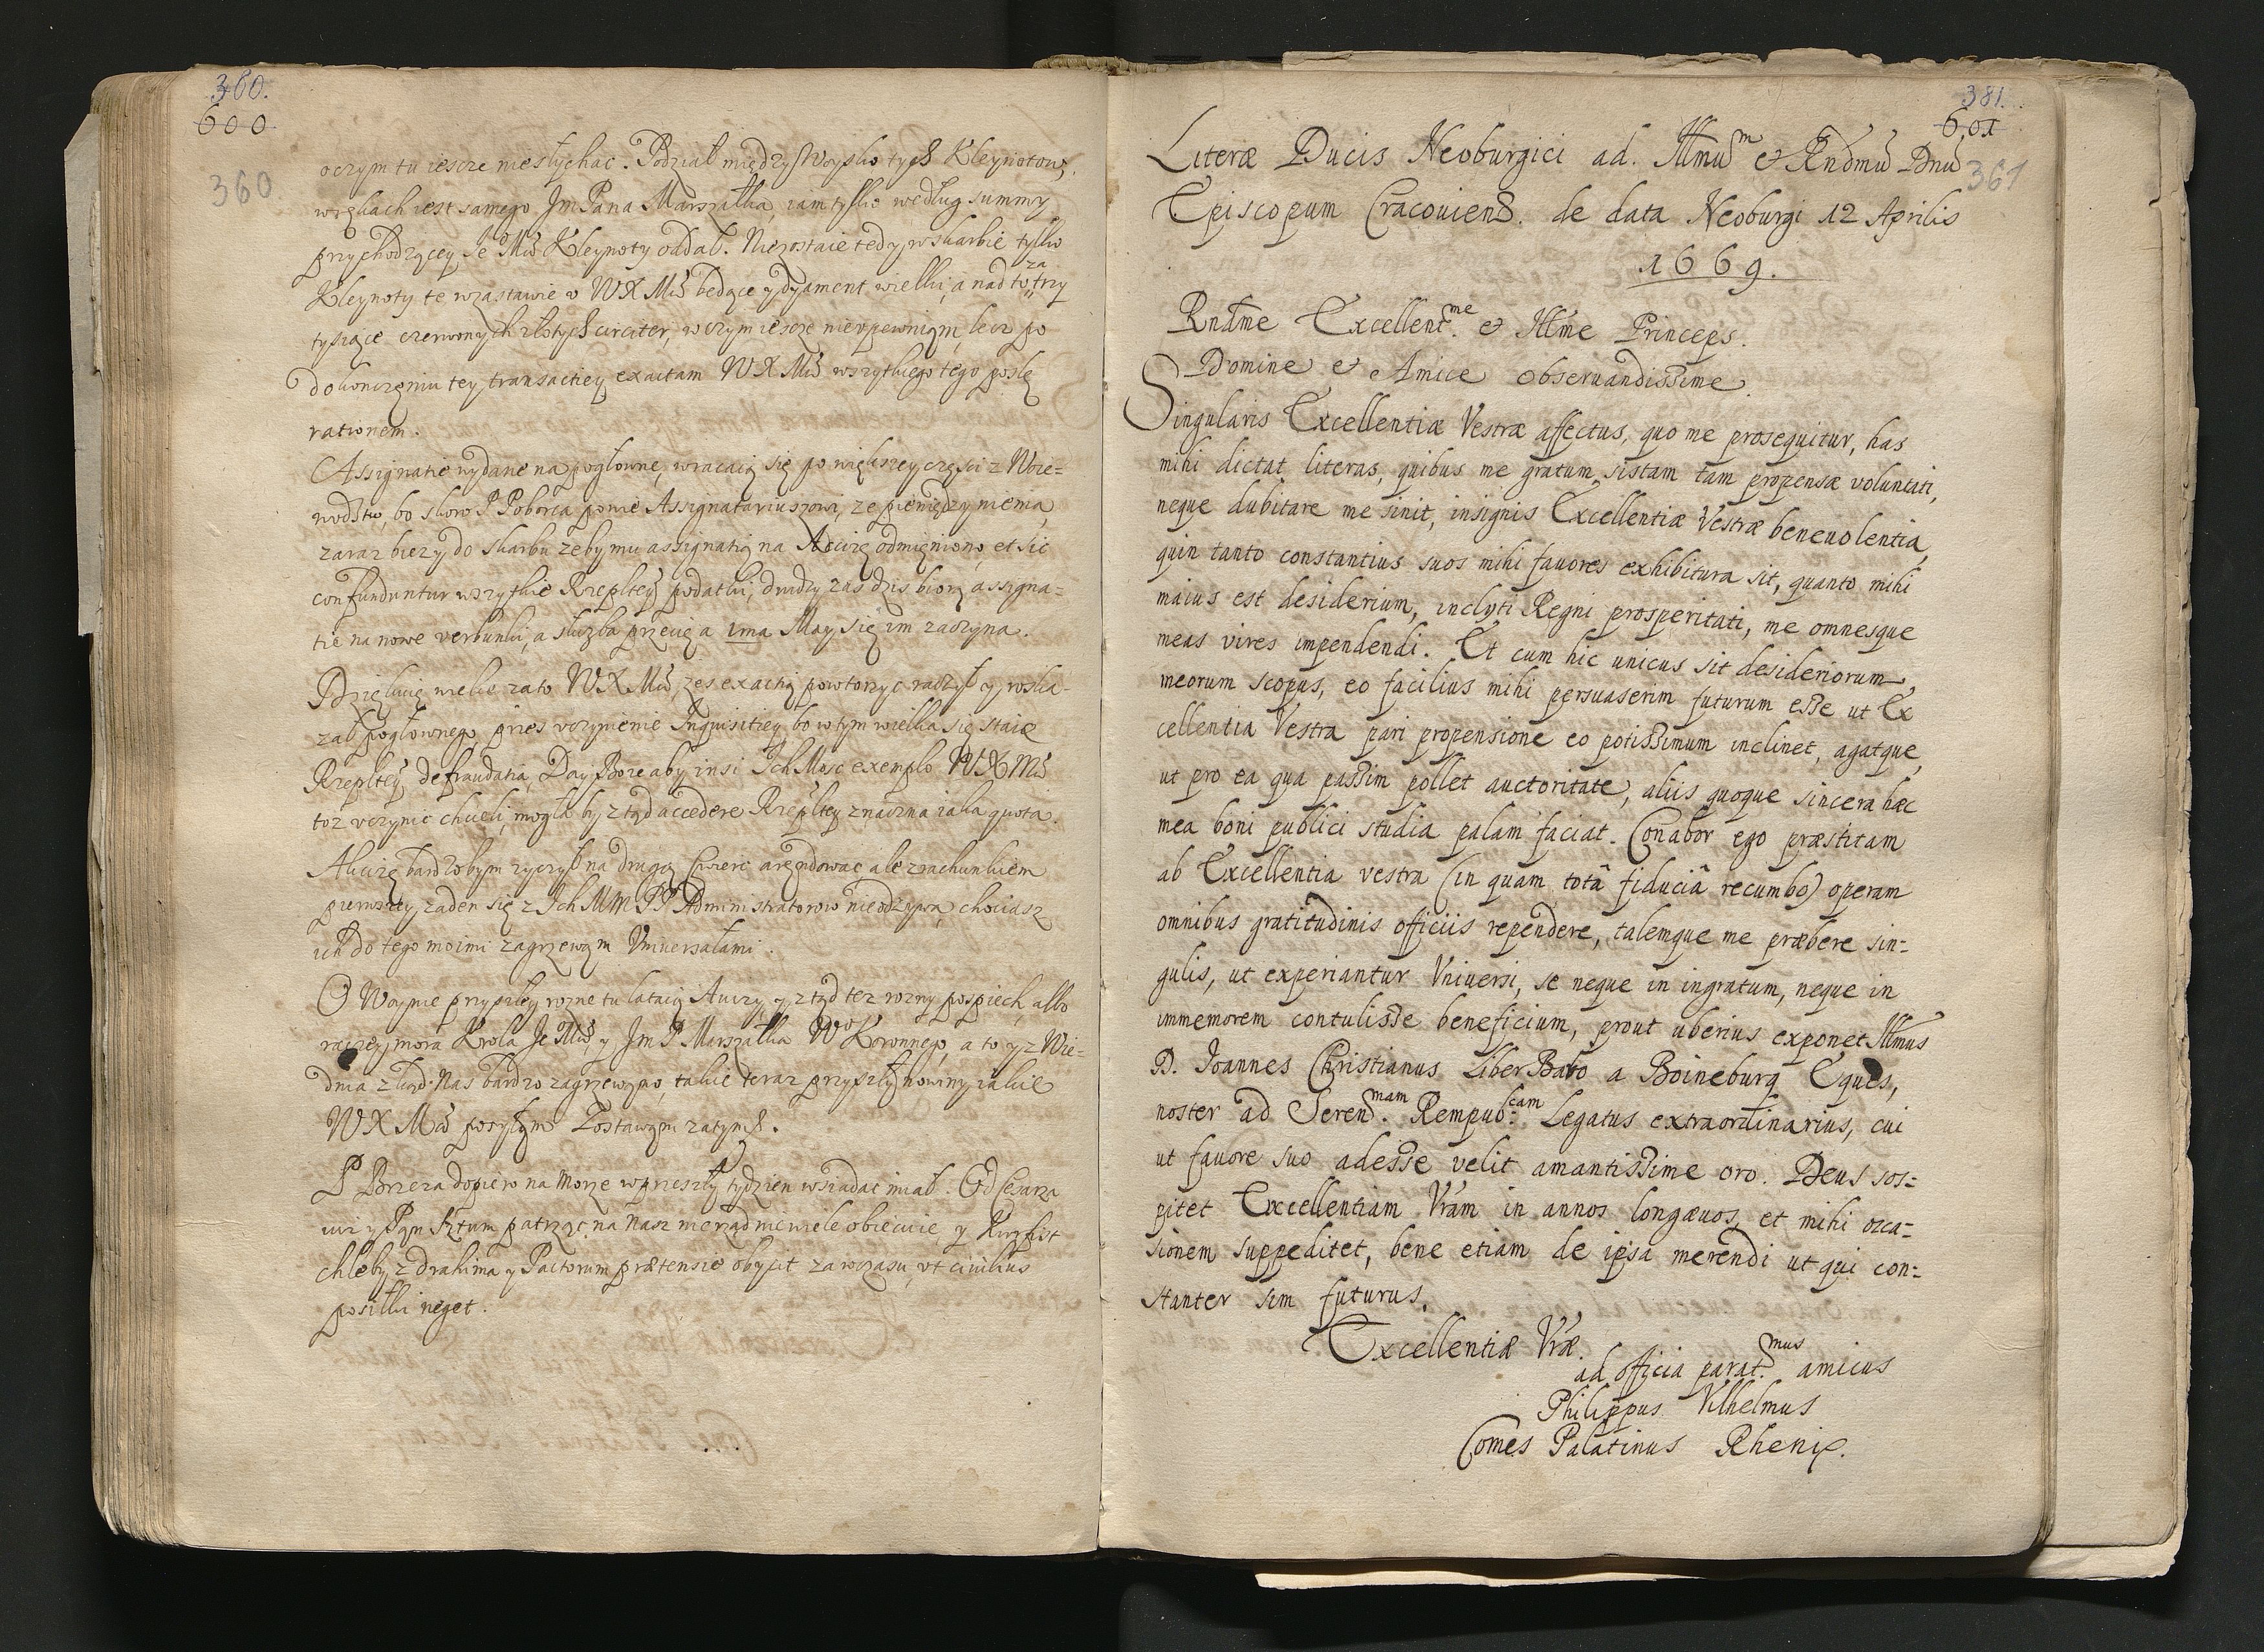 360.
600
360
oczym tu iescze nie słychac. Podział między Woysko tych Kleynotow,
w rękach iest samego Jm Pana Marszałka, iam tylko według summy
przychodzącey Je Mći Kleynoty oddał. Niezostaie tedy w skarbie tylko
Kleynoty te w zastawie v WX Mći będące y dyament wielki, a nad to za trzy
tysiące czerwonych złotych circiter, w czym iescze nie vpewnięm, lecz po
dokonczeniu tey transactiey exactam WX Mći wszytkiego tego poslę
rationem.
Assignatie wydane na pogłowne, wracaią się po większey częsci z Woie=
wodstw, bo skoro P Poborca powie Assignatariuszowi, ze pieniędzy niema,
zaraz biezy do skarbu zeby mu assignatią na Akcizę odmieniono, et sic
confunduntur wszytkie Rzepltey podatki, drudzy zas dzis biorą assigna=
tie na nowe verbunki, a słuzba przecię a 1ma May się im zaczyna.
Dziękuię wielce zato WX Mći, zes exactią powtorzyc raczył y roska-
zał pogłownego przes vczynienie Inquisitiey, bo w tym wielka się staie
Rzepltey defraudatia, Day Boze aby insi Ich Mosc exemplo WX Mći
toz vczynic chcieli, mogła by z tąd accedere Rzepltey znaczna iaka quota.
Akcizę bardzobym zyczył na drugą Cwierc arędowac ale z rachunkiem
pierwszey zaden się z Ich MM PP Administratorow nieodzywa, chociasz
ich do tego moimi zagrzewam Vniuersałami.
O Woynie przyszłey rozne tu lataią Auizy, y ztąd tez rozny pospiech, albo
raczey mora Krola Je Mći, y Jm P Marszałka W. Koronnego, a to y z Wie=
dnia z kąd Nas bardzo zagrzewano, takie teraz przyszły nowiny iakie
WX Mći posyłam Zostawam zatym &.
P Brzeza dopiero na Morze w przeszły tydzien wsiadac miał. Od Cesarza
patrząc na Nasz nierząd niewiele obiecuie, y Kurfirst
chleby z Drahima y Pactorum prætensie obyiit zawczasu, vt ciuilius
posiłki neget.
381.
601
361
Literæ Ducis Neoburgici ad. Illmũm & Rndmũ Dnũ
Episcopum Cracouiens. de data Neoburgi 12 Aprilis
1669.
Rndme Excellentme. & Illme Princeps.
Domine & Amice obseruandissime.
Singularis Excellentiæ Vestræ affectus, quo me prosequitur, has
mihi dictat literas, quibus me gratum sistam tam propensæ voluntati,
neque dubitare me sinit, insignis Excellentiæ Vestræ beneuolentia,
quin tanto constantius suos mihi fauores exhibitura sit, quanto mihi
maius est desiderium, inclyti Regni prosperitati, me omnesque
meas vires impendendi. Et cum hic unicus sit desideriorum
meorum scopus, eo facilius mihi persuaserim futurum esse ut Ex
cellentia Vestra pari propensione eo potissimum inclinet, agatque,
ut pro ea qua passim pollet auctoritate, aliis quoque sincera hæc
mea boni publici studia palam faciat. Conabor ego præstitam
ab Excellentia vestra (in quam totâ fiduciâ recumbo) operam
omnibus gratitudinis officiis rependere, talemque me præbere sin=
gulis, ut experiantur Vniuersi, se neque in ingratum, neque in
immemorem contulisse beneficium, prout uberius exponet Illmus
D. Joannes Christianus Liber Baro a Boineburg Eques,
noster ad Serenmam. Rempubcam. Legatus extraordinarius, cui
ut fauore suo adesse velit amantissime oro. Deus sos=
pitet Excellentiam Vrám in annos longæuos, et mihi occa=
sionem suppeditet, bene etiam de ipsa merendi ut qui con=
stanter sim futurus.
Excellentiæ Vræ.
ad officia paratmus. amicus
Philippus Vilhelmus
Comes Palatinus Rheni.